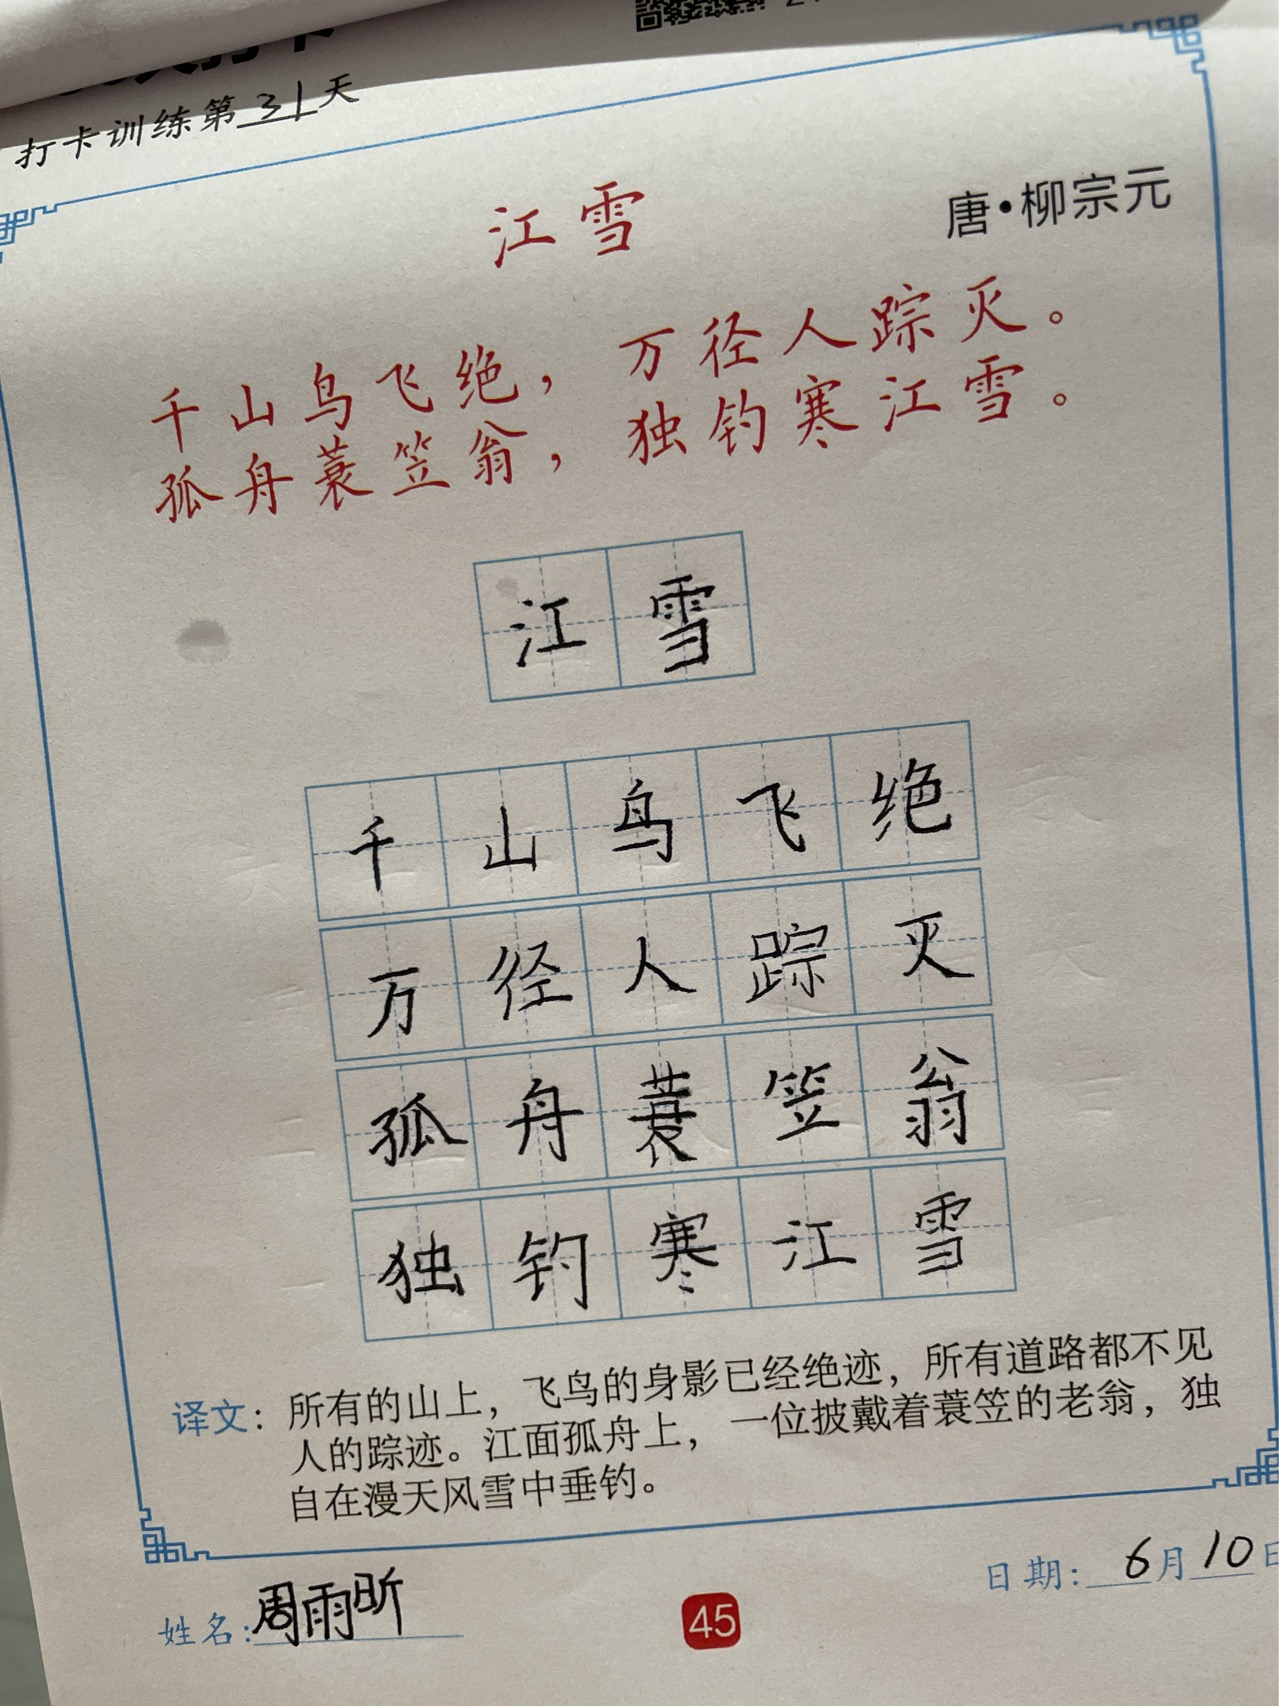 打卡训练第31天
江雪
唐·柳宗元
千山鸟飞绝，万径人踪灭。
孤舟蓑笠翁，独钓寒江雪。
江雪
千山鸟飞绝
万径人踪灭
孤舟蓑笠翁
独钓寒江雪
译文：所有的山上，飞鸟的身影已经绝迹，所有道路都不见
人的踪迹。江面孤舟上，一位披戴着蓑笠的老翁，独
自在漫天风雪中垂钓。
姓名：周雨昕
45
日期：6月10日